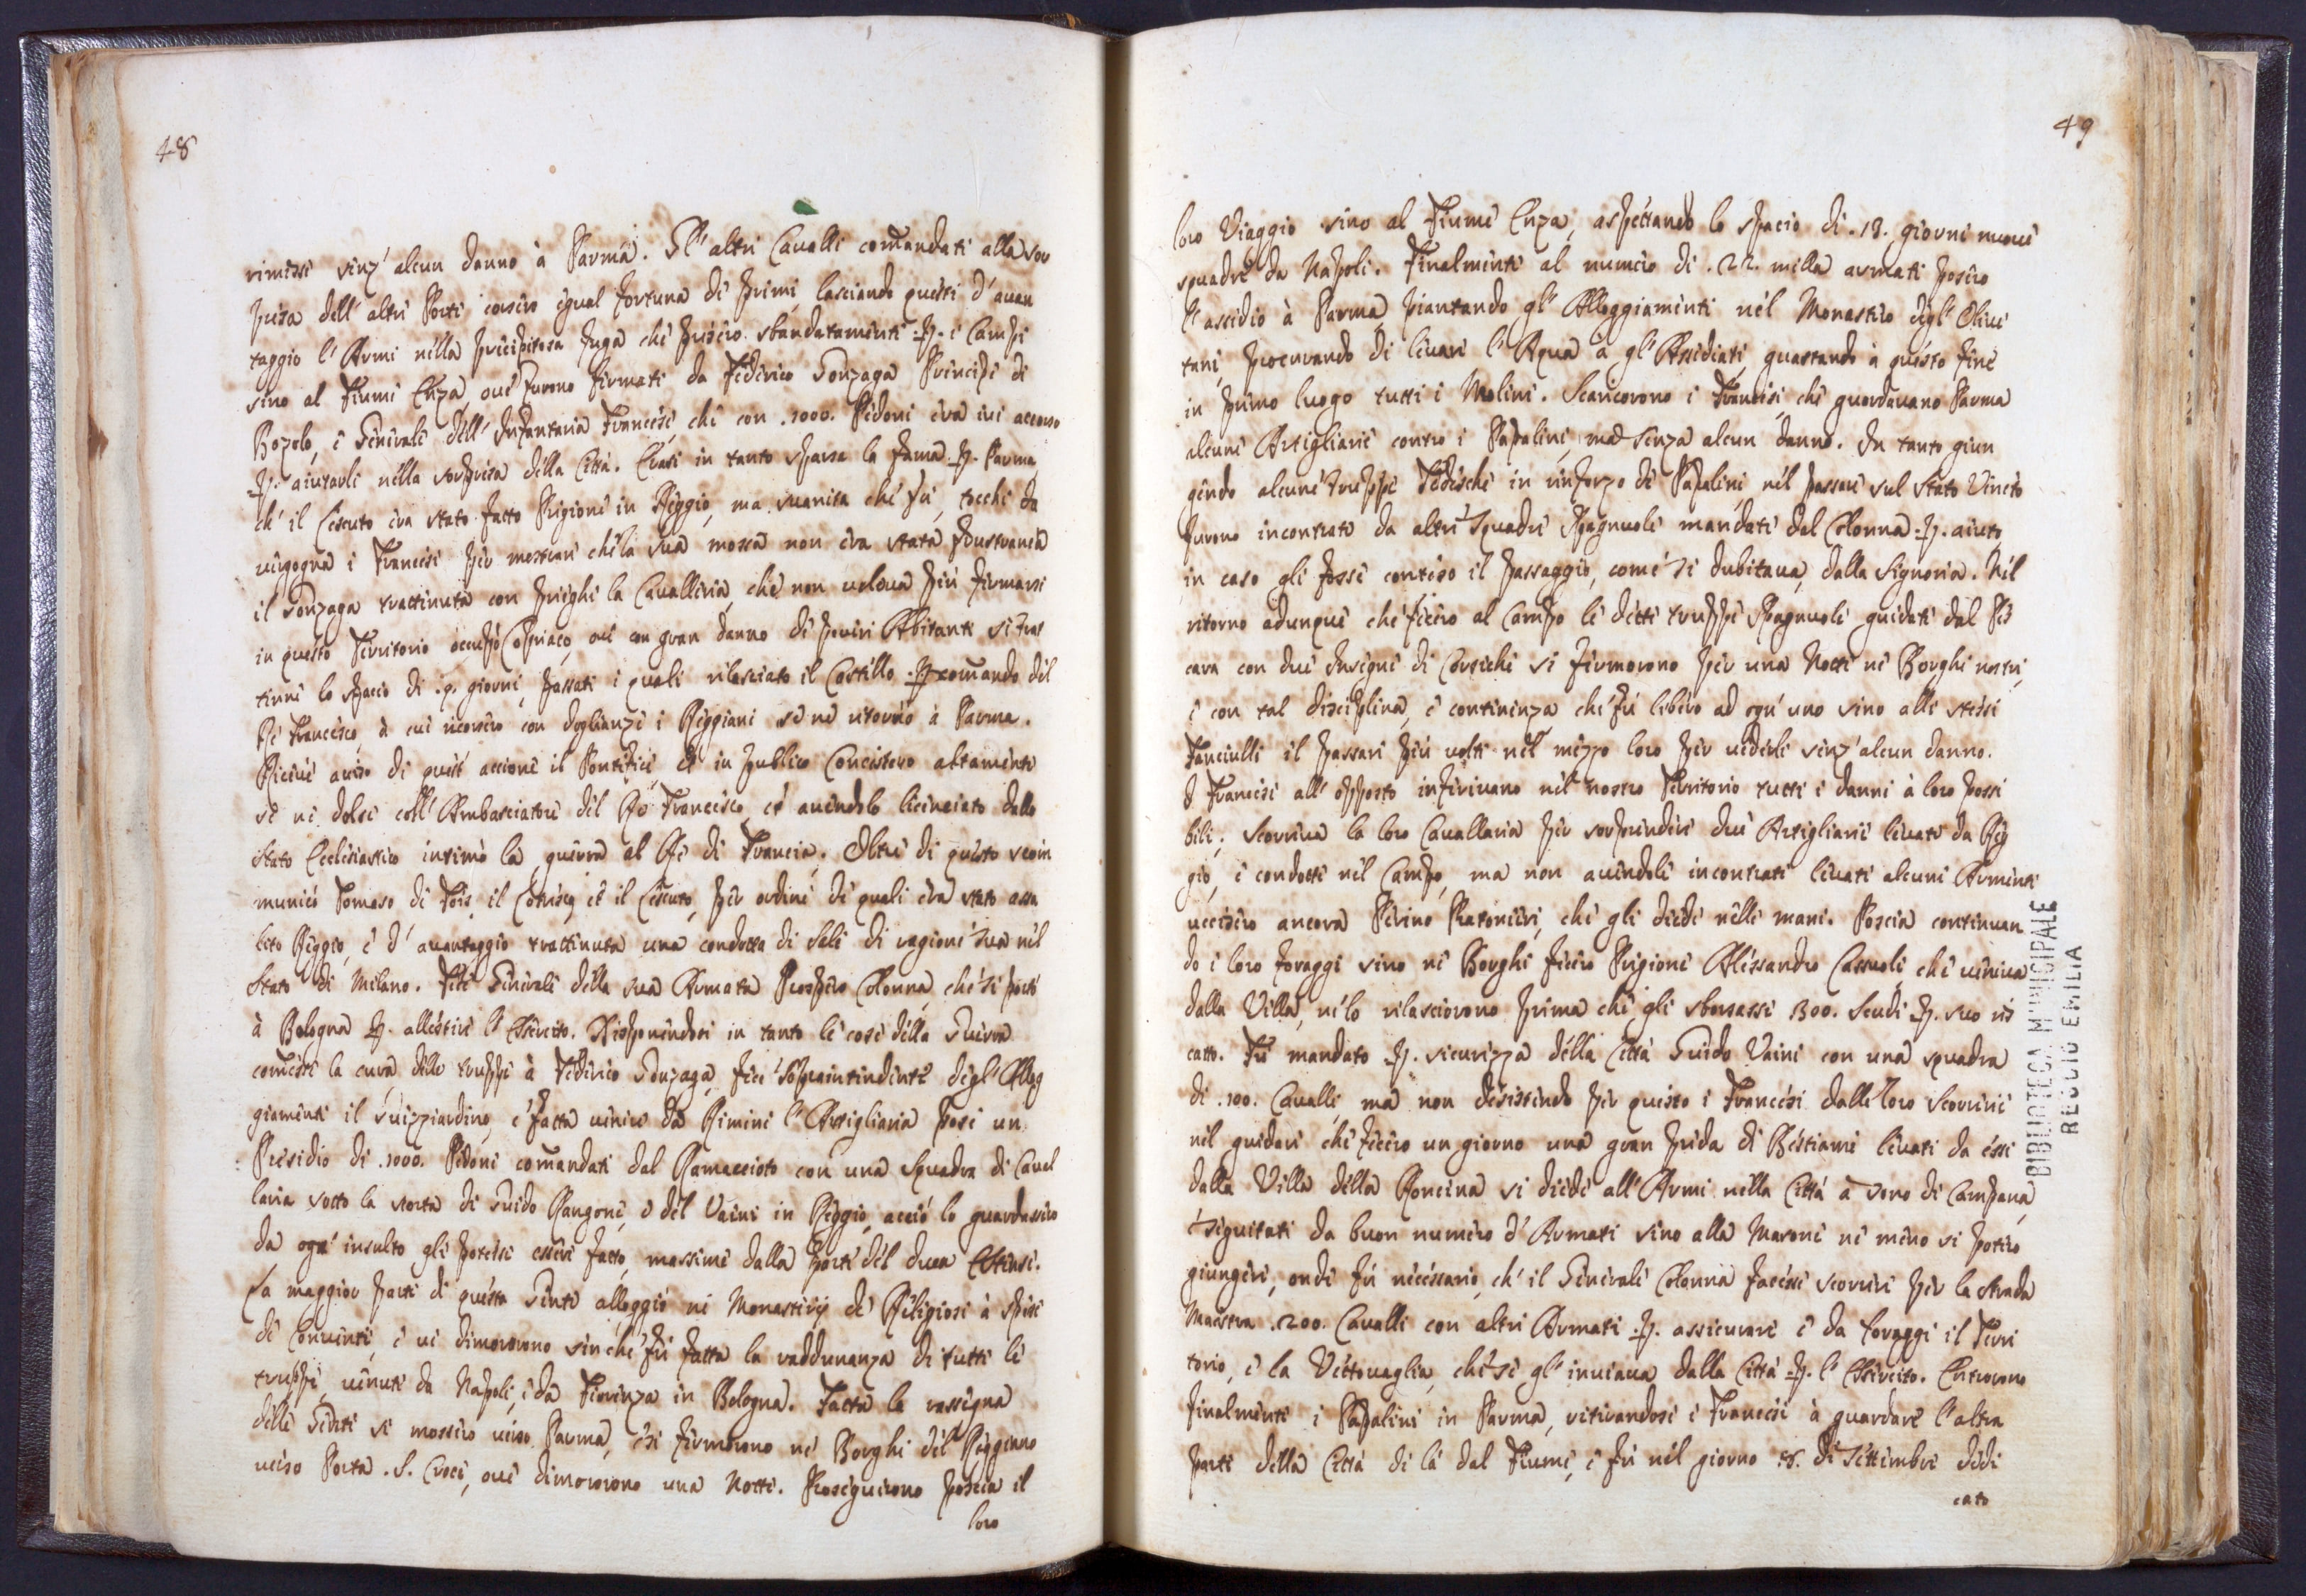 48
rimessi senz' alcun danno à Parma. Gl' altri Cavalli comandati alla sor
presa dell' altre Porti corsero egual fortuna dè primi, lasciando questi d' avan
taggio l' Armi nella precipitosa fuga che presero sbandatamente p. i Campi
sino al Fiume Enza, ove furono fermati da Federico Gonzaga Principe di
Bozolo, e Generale dell' Infantaria Francese, che con .1000. Pedoni era ivi accorso
p. aiutarli nella sorpresa della Città. Erasi in tanto sparsa la fama p. Parma,
ch' il Lescuto era stato fatto Prigione in Reggio, ma svanita che fù, tocchi da
vergogna i Francesi per mostrare che la sua mossa non era stata frustranea
il Gonzaga trattenuta con prieghi la Cavalleria, che non voleva più fermarsi
in questo Territorio occupò Covriaco, ove con gran danno di poveri Abitanti si trat
tenne lo spacio di .9. giorni, passati i quali rilasciato il Castello p. comando del
Rè Francesco, à cui ricorsero con doglianze i Reggiani se ne ritornò à Parma.
Riceve aviso di quest' accione il Pontefice, et in publico Concistoro altamente
se ne dolse coll' Ambasciatore del Rè Francesco, et avendolo licenciato dallo
Stato Ecclesiastico intimò la guerra al Rè di Francia. Oltre di questo scom
municò Tomaso di Fois, il Lotrèc, et il Lescuto, per ordine dè quali era stato assa
lito Reggio, e d' avantaggio trattenuta una condotta di Sale di ragione sua nel
Stato di Milano. Fece Generale della sua Armata Prospero Colonna, che si portò
à Bologna p. allestire l' Esercito. Disponendosi in tanto le cose della Guerra
comise la cura delle truppe à Federico Gonzaga, fece Sopraintendente degl' Allog
giamenti il Guizziardino, e fatta venire da Rimini l' Artigliaria pose un
Presidio di .1000. Pedoni comandati dal Ramaccioto con una Squadra di Caval
laria sotto la scorta di Guido Rangone, e del Vaini in Reggio, acciò lo guardassero
da ogn' insulto gli potesse essere fatto, massime dalla parte del duca Estense.
La maggior parte di questa Gente alloggiò nè Monasterij dè Religiosi à spese
dè Conventi, e vi dimororono sinche fù fatta la raddunanza di tutte le
truppe, venute da Napoli, e da Fiorenza in Bologna. Fatta la rassegna
delle Genti si mossero verso Parma, e si fermorono nè Borghi del Reggiano
verso Porta .S. Croce, ove dimororono una Notte. Proseguirono poscia il
loro
49
loro Viaggio sino al Fiume Enza, aspettando lo spacio di .18. giorni nuove
squadre da Napoli. Finalmente al numero di .22. milla armati posero
l' assedio à Parma, piantando gl' Alloggiamenti nel Monastero degl' Olive
tani, procurando di levare l' Aqua à gl' Assediati, guastando à questo fine
in primo luogo tutti i Molini. Scaricorono i Francesi, che guardavano Parma
alcune Artigliarie contro i Papalini, ma senza alcun danno. In tanto giun
gendo alcune truppe Tedesche in rinforzo dè Papalini, nel passare sul Stato Veneto
furono incontrate da altre Squadre Spagnuole mandate dal Colonna p. aiuto
in caso gli fosse conteso il passaggio, come si dubitava, dalla Signoria. Nel
ritorno adunque che fecero al Campo le dette truppe Spagnuole guidate dal Pes
cara con due Insegne di Corsichi si fermorono per una Notte nè Borghi nostri,
e con tal disciplina, e continenza che fù libero ad ogn' uno sino alli stessi
Fanciulli il passare più volte nel mezzo loro per vederli senz' alcun danno.
I Francesi all' opposto inferivano nel nostro Territorio tutti i danni à loro possi
bili; Scorreva la loro Cavallaria per sorprendere due Artigliarie levate da Reg
gio, e condotte nel Campo, ma non avendole incontrate levati alcuni Armenti
uccisero ancora Perino Pratonieri, che gli diede nelle mani. Poscia continuan
do i loro foraggi sino nè Borghi fecero Prigione Alessandro Cassuoli, che veniva
dalla Villa, nè lo rilasciorono prima che gli sborsasse 1300. Scudi p. suo ris
catto. Fù mandato p. sicurezza della Città Guido Vaini con una squadra
di .100. Cavalli, ma non desistendo per questo i Francesi dalle loro Scorrerie
nel guidare che fecero un giorno una gran preda di Bestiame levati da essi
dalla Villa della Roncina si diede all' Armi nella Città à sono di Campana,
e seguitati da buon numero d' Armati sino alla Marone nè meno si potero
giungere, onde fù necessario, ch' il Generale Colonna facesse scorrere per la strada
Maestra .200. Cavalli con altri Armati p. assicurare e da foraggi il Terri
torio, e la Vettovaglia, che se gl' inviava dalla Città p. l' Esercito. Entrorono
finalmente i Papalini in Parma, ritirandosi i Francesi à guardare l' altra
parte della Città di là dal Fiume, e fù nel giorno di Settembre dedi
cato
BIBLIOTECA MUNICIPALE
REGGIO EMILIA